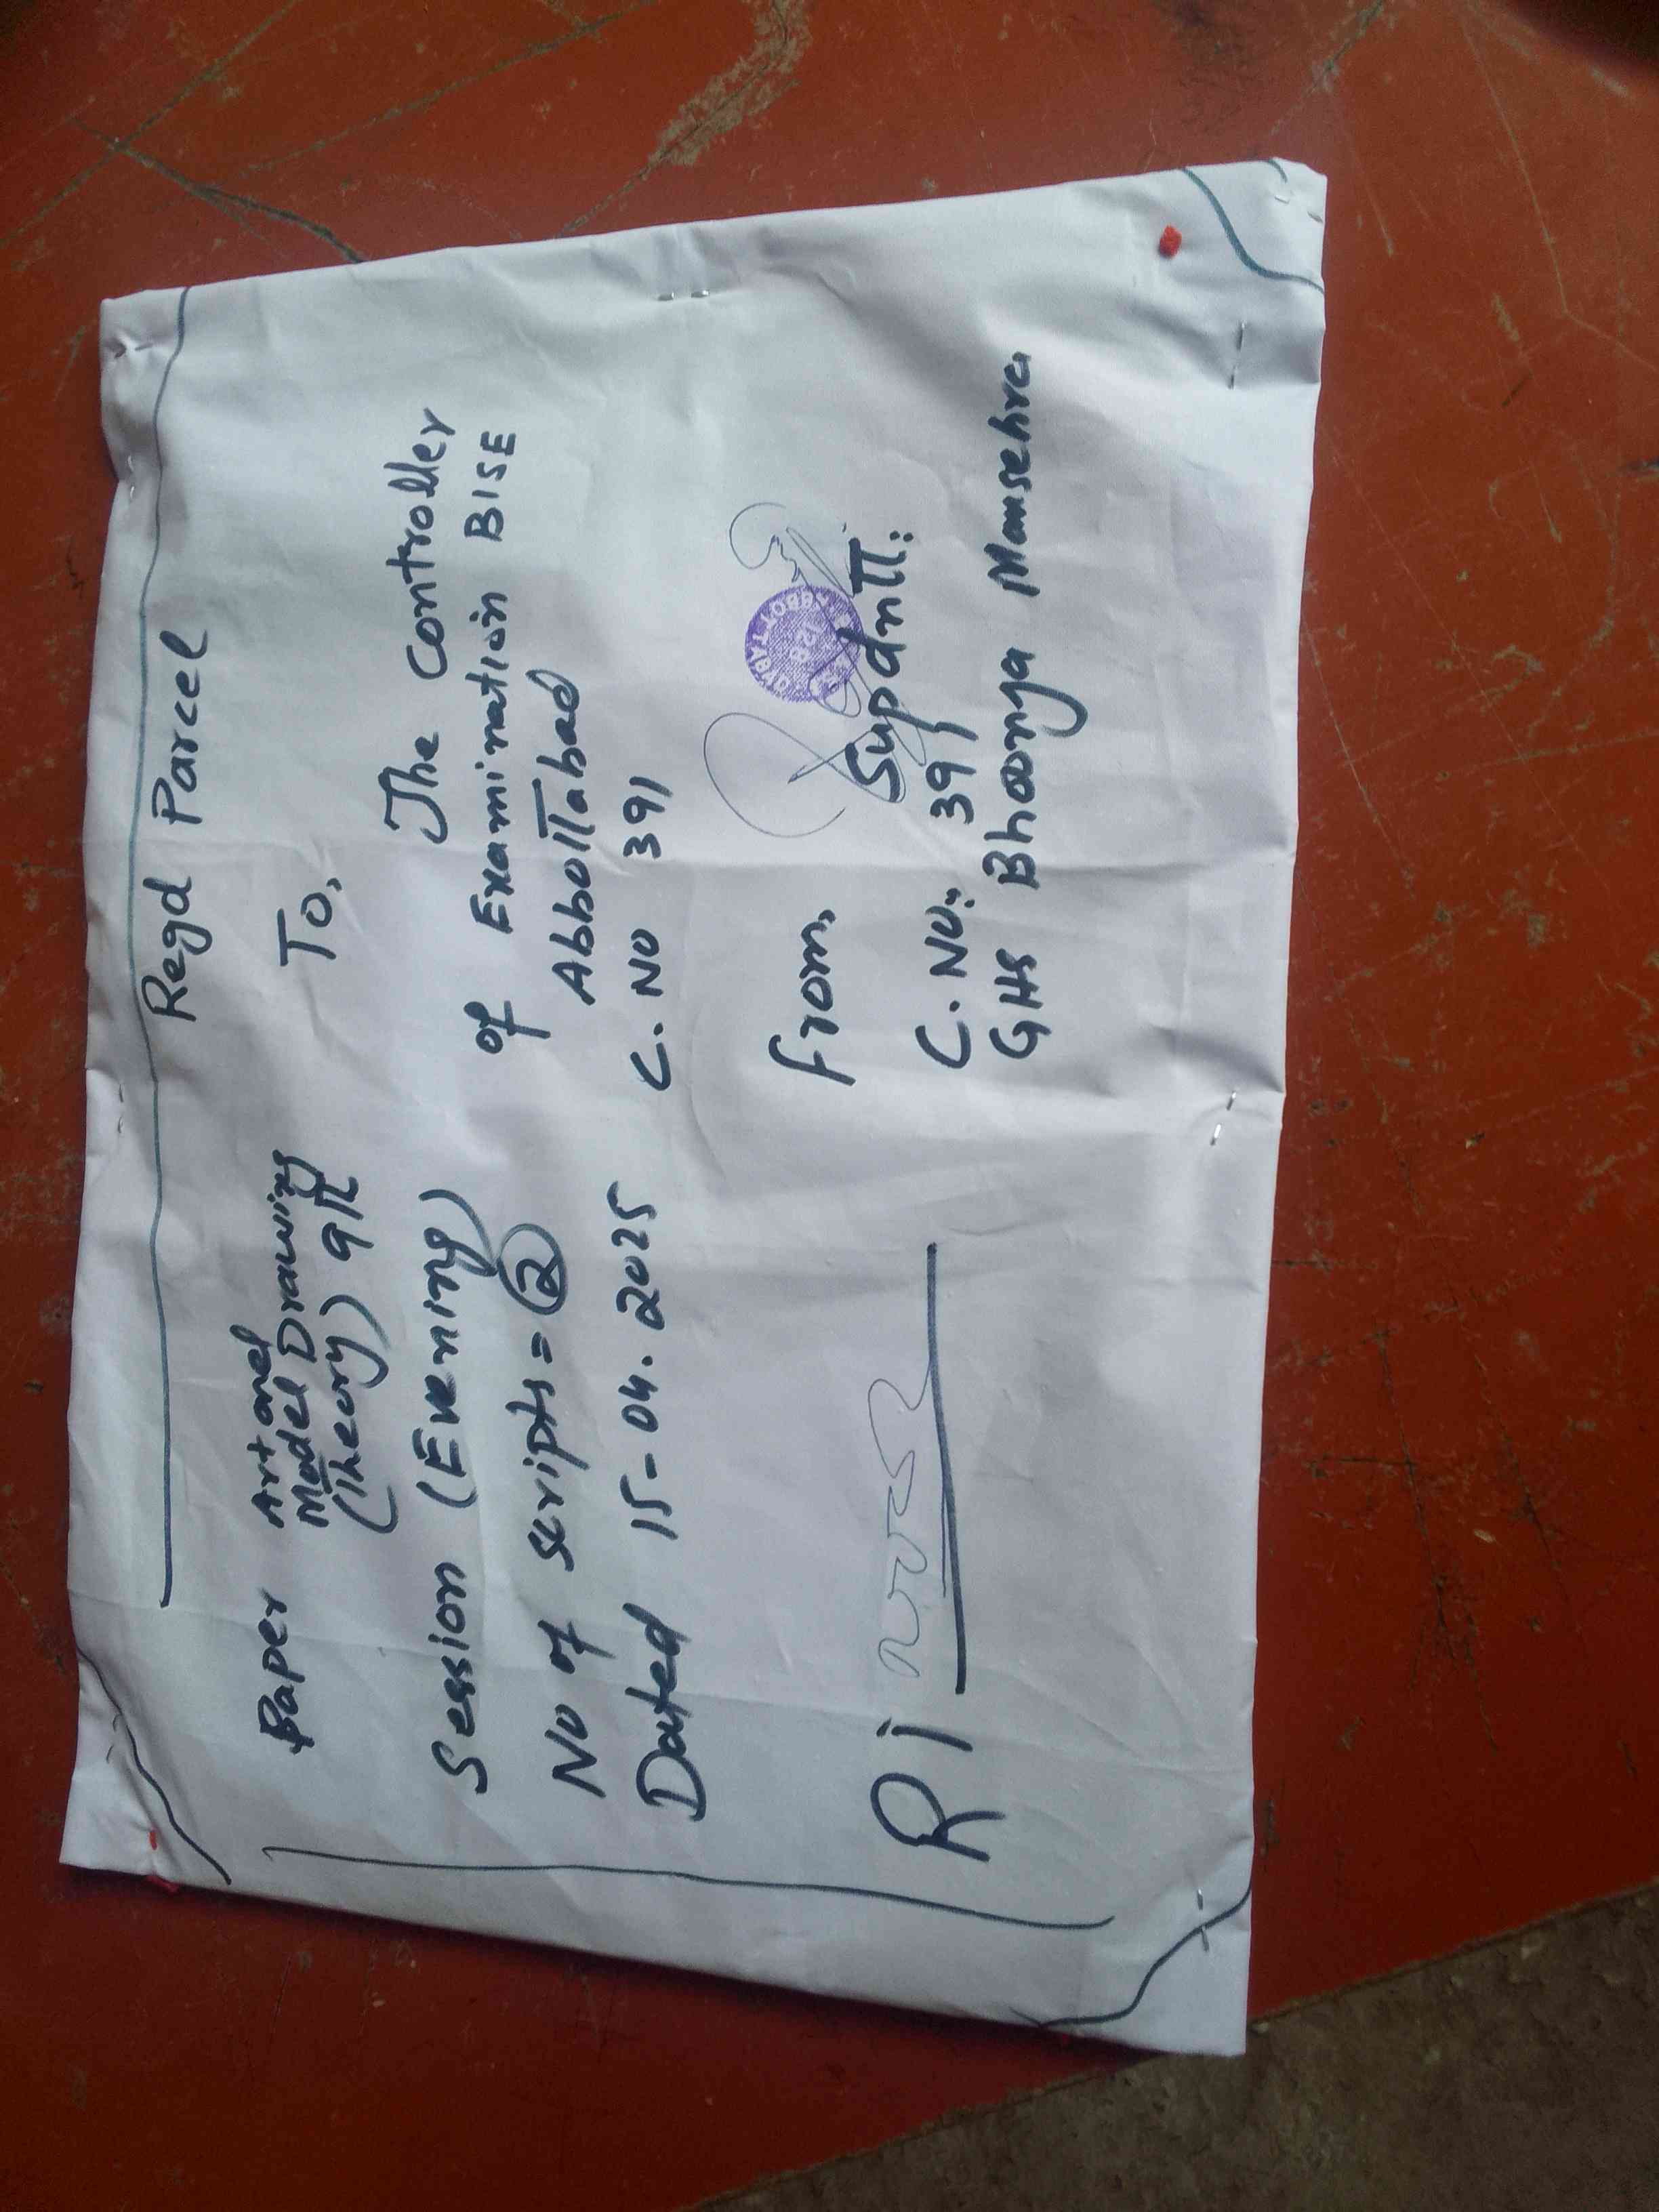 Regd Parcel
Paper Art and
Model Drawing
(Theory) 9th
Session (Evening)
No of scripts = 2
Dated 15-04-2025
To,
The Controller
of Examination BISE
Abbottabad
C. No 391
From,
Supdntt:
C. No: 391
GHS Bhoonja Mansehra
ABBOTTABAD
Ri